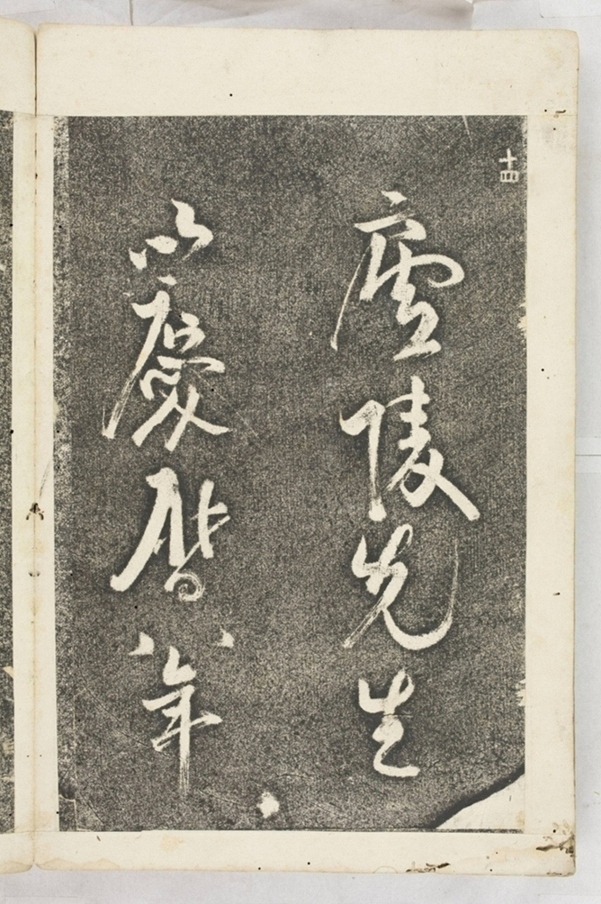 十四
廬陵先生
以慶曆八年